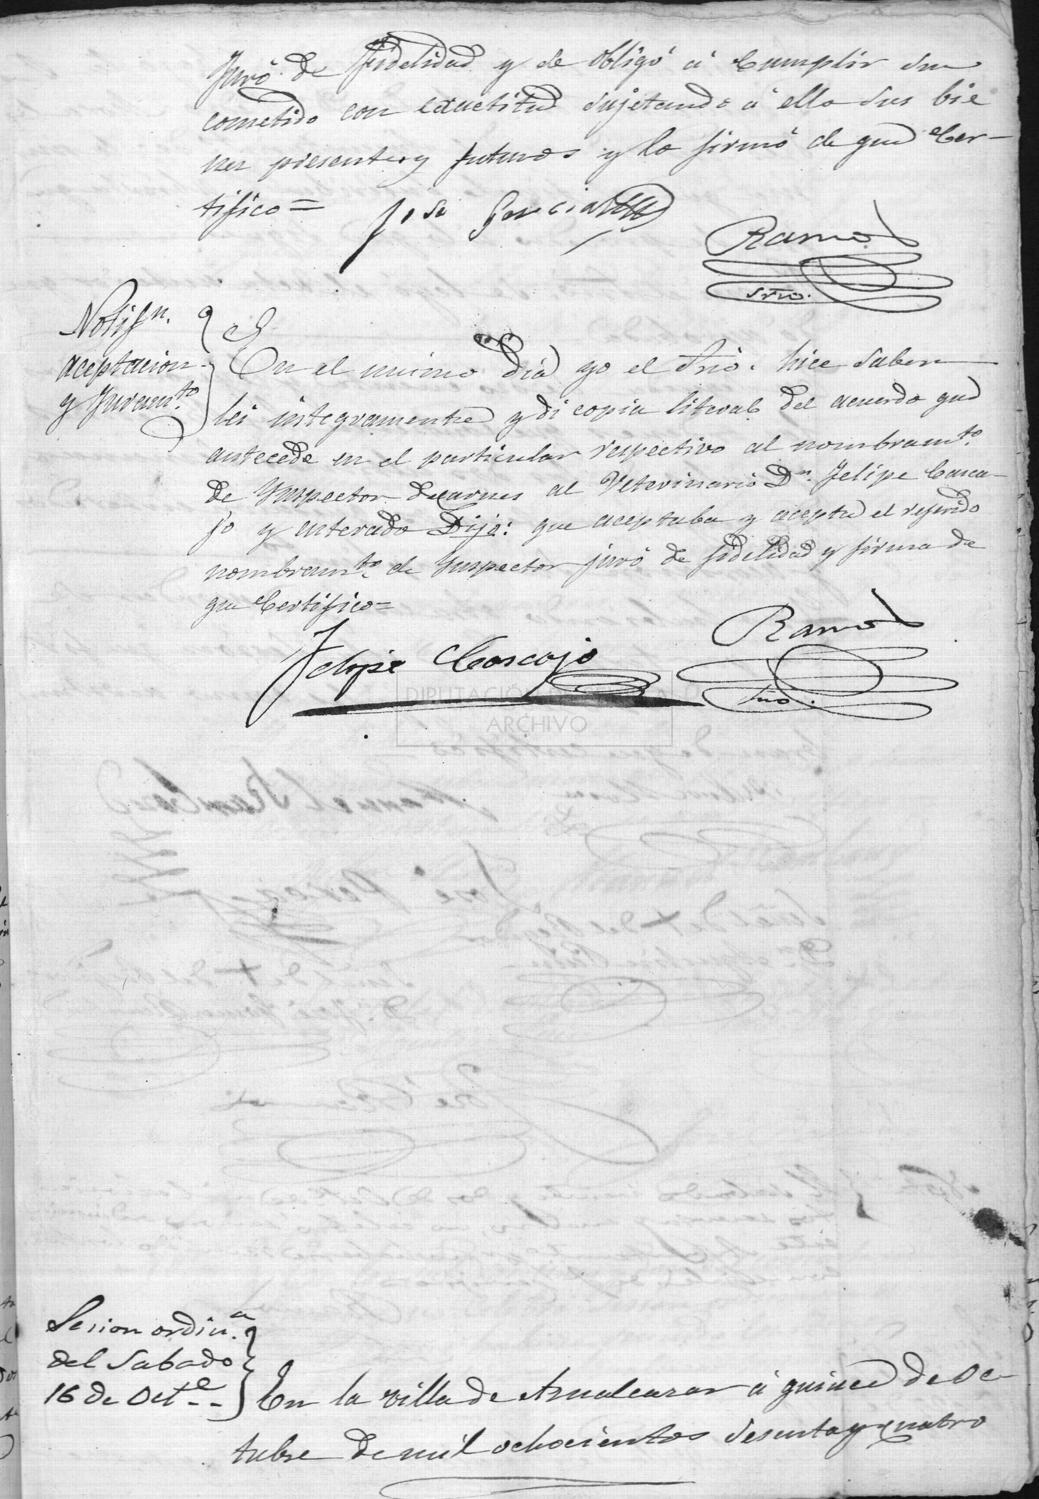 Juró de fidelidad y se obligó á cumplir su
cometido con exactitud sujetando á ello sus bie
nes presentes y futuros y lo firmó de que Cer-
tifico=
José Garcia
Ramos
Srio.
Notifn.
aceptacion
y Juramto.
En el mismo dia yo el Srio. hice saber
lei integramente y di copia literal del acuerdo que
antecede en el particular respectivo al nombramto.
de Ynspector de carnes al Veterinario Dn. Felipe Casca-
jo y enterado Dijo: que aceptaba y acepta el referido
nombramto. de Ynspector juró de fidelidad y firma de
que Certifico=
Felipe Cascajo
Ramos
Srio.
DIPUTACIÓN
ARCHIVO
Sesion ordina.
del Sabado
16 de Octe..
En la villa de Aznalcazar á quince de Oc-
tubre de mil ochocientos sesenta y cuatro